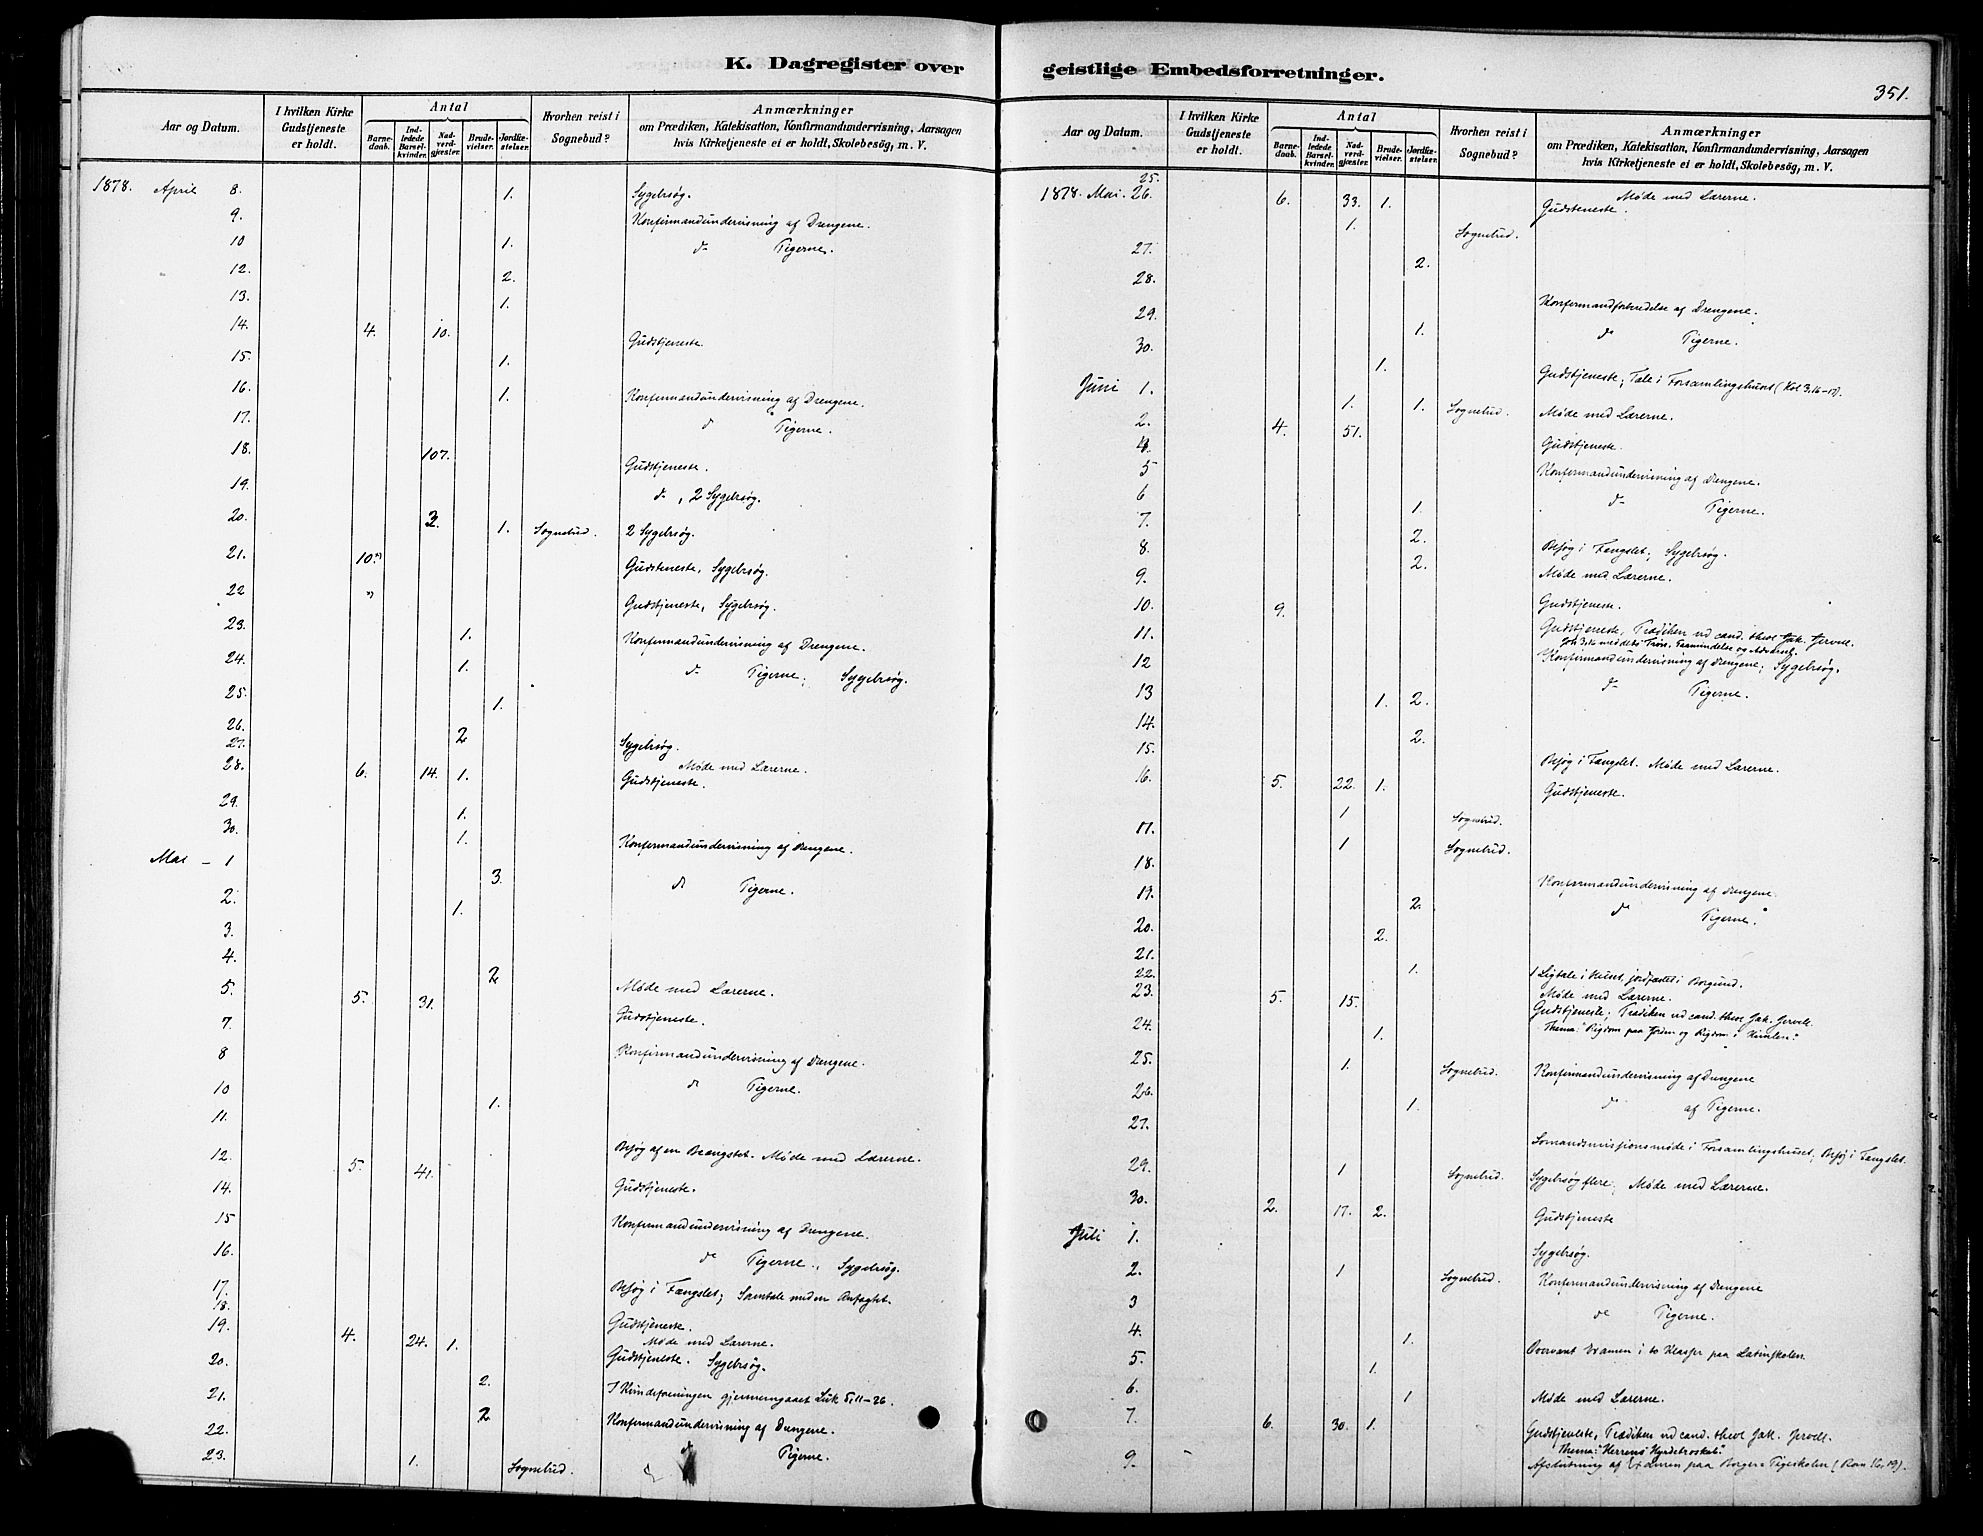 K. Dagregister over
Aar og Datum.
I hvilken Kirke Gudstjeneste er holdt.
Antal
Barne-daab.
Ind-ledede Barsel-kvinder.
Nad-verd-gjæster.
Brude-vielser.
Jordfæ-stelser.
Hvorhen reist i Sognebud?
Anmærkninger
om Prædiken, Katekisation, Konfirmandundervisning, Aarsagen
hvis Kirketjeneste ei er holdt, Skolebesög, m. V.
1878. April 8. 1. Sygebesøg.
9. Konfirmandundervisning af Drengene.
10 1. do Pigerne.
12. 2.
13. 1.
14. 4. 10. Gudstjeneste.
15. 1.
16. 1. Konfirmandundervisning af Drengene.
17. do Pigerne.
18. 107. Gudstjeneste.
19. do, 2 Sygebesøg.
20. 2. 1. Sognebud. 2 Sygebesøg.
21. 10. Gudsteneste, Sygebesøg.
22 Gudstjeneste, Sygebesøg.
23. 1. Konfirmandundervisning af Drengene.
24. 1. do Pigerne; Sygebesøg.
25. 1.
26. 2
27. Sygebesøg. Møde med Lærerne.
28. 6. 14. 1. Gudstjeneste.
29. 1.
30. 1. Konfirmandundervisning af Drengene.
Mai - 1 3. do Pigerne.
2. 1.
3.
4. 2 Møde med Lærerne.
5. 5. 31. Gudstjeneste.
7. Konfirmandundervisning af Drengene.
8 do Pigerne.
10 1.
11. Besøg af en Beængstet. Møde med Lærerne.
12. 5. 41. Gudstjeneste.
14. Konfirmandundervisning af Drengene.
15 do Pigerne, Sygebesøg.
16. Besøg i Fængslet; Samtale med en Anfægtet.
17. Gudstjeneste.
18. Møde med Lærerne.
19. 4. 24. 1. Gudstjeneste. Sygebesøg.
20. 2. I Kvindeforeningen gjennemgaaet Luk 5, 11-26.
21. 2 Konfirmandundervisning af Drengene.
22. do Pigerne.
23. 1. Sognebud.
geistlige Embedsforretninger.
351.
Aar og Datum.
I hvilken Kirke Gudstjeneste er holdt.
Antal
Barne-daab.
Ind-ledede Barsel-kvinder.
Nad-verd-gjæster.
Brude-vielser.
Jordfæ-stelser.
Hvorhen reist i Sognebud?
Anmærkninger
om Prædiken, Katekisation, Konfirmandundervisning, Aarsagen
hvis Kirketjeneste ei er holdt, Skolebesög, m. V.
25. Møde med Lærerne.
1878. Mai. 26. 6. 33. 1. Gudsteneste.
1. Sognebud.
27. 2.
28. Konfirmandforberedelse af Drengene.
29. 1. do Pigerne.
30. 1. Gudstjeneste; Tale i Forsamlingshuset (Kol 3, 16-17).
Juni 1. 1. 1. Sognebud. Møde med Lærerne.
2. 4. 51. Gudstjeneste.
4. Konfirmandundervisning af Drengene.
5 do Pigerne.
6 1.
7. 2. Besøg i Fængslet; Sygebesøg.
8. 2. Møde med Lærerne.
9. Gudstjeneste.
10. 9. Gudstjeneste, Prædiken ved cand. theol Jak. Jervell.
11. Konfirmandundervisning af Drengene; Sygebesøg.
12 do Pigerne.
13 1. 2.
14. 2.
15. Besøg i Fængslet. Møde med Lærerne.
16. 5. 22. 1. Gudstjeneste.
1 Sognebud.
17. 1 Sognebud.
18. Konfirmandundervisning af Drengene.
19. 2. do Pigerne.
20. 2.
21. 1. 1 Ligtale i Huset, jordfæstet i Borgund.
22. Møde med Lærerne.
23. 5. 15. Gudstjeneste; Prædiken ved cand. theol Jak. Jervell.
Thema: "Rigdom paa Jorden og Rigdom i Himlen."
24. 1.
25. 1. Sognebud. Konfirmandundervisning af Drengene
26. 1. do af Pigerne.
27. Sømandsmissionsmøde i Forsamlingshuset; Besøg i Fængslet.
29. 1 Sognebud. Sygebesøg flere; Møde med Lærerne.
30. 2. 17. 2. Gudstjeneste
Juli 1. Sygebesøg.
2. 1 Sognebud. Konfirmandundervisning af Drengene
3 do Pigerne.
4. 1. Overvært Examen i to Klasser paa Latinskolen.
5. 1.
6. 1 Møde med Lærerne.
7. 6. 30. 1. Gudstjeneste, Prædiken ved cand. theol Jak. Jervell.
Thema: "Herrens Hyrdetroskab."
9. Afslutning af Examen paa Borger- Pigeskolen (Rom 16, 19).